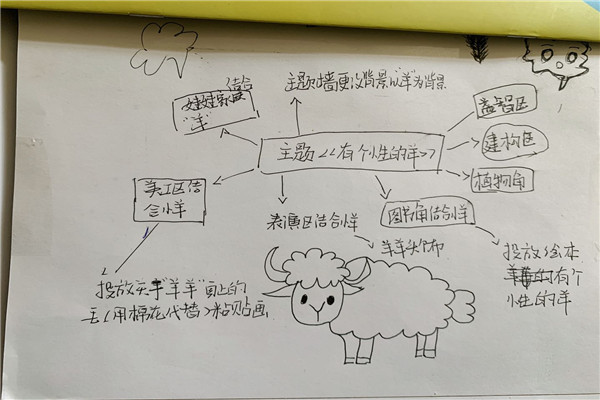 主题墙更改背景以"羊"为背景
结合
娃娃家
"羊"
益智区
主题《有个性的羊》
建构区
植物角
美工区结
合小羊
表演区结合小羊
图书角结合小羊
羊羊头饰
投放绘本
有个
性的羊
投放关于"羊羊"画上的
毛(用棉花代替)粘贴画